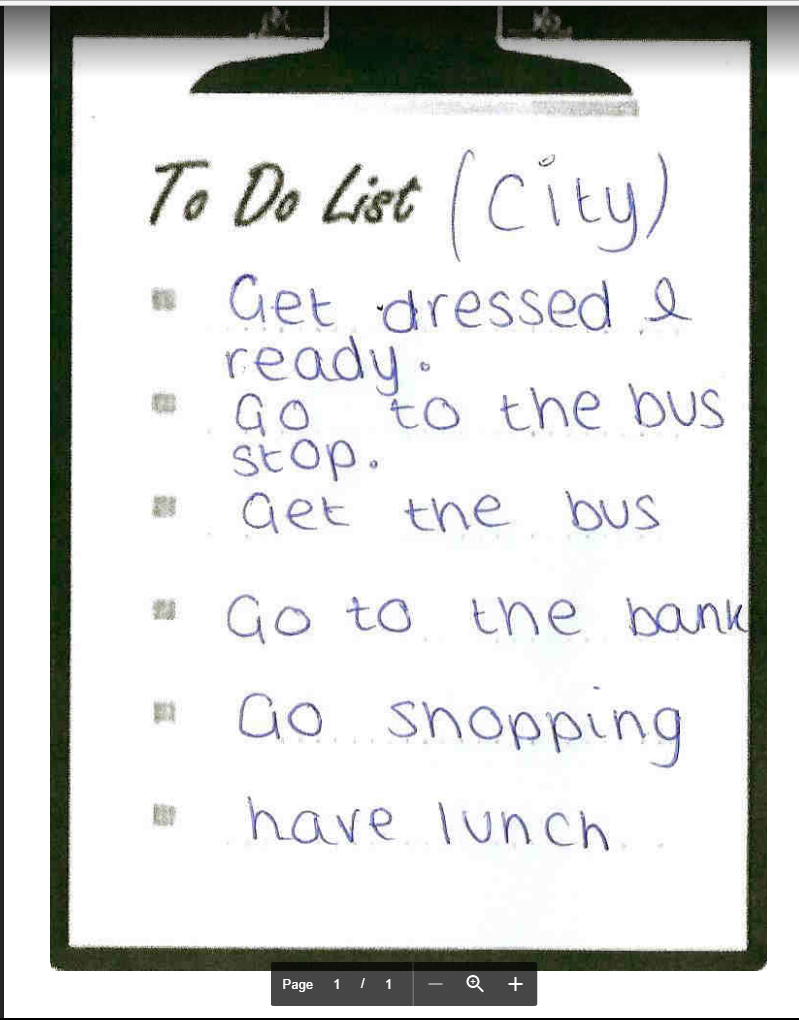 To Do List (City)
Get dressed &
ready.
Go to the bus
stop.
Get the bus
Go to the bank
Go shopping
have lunch
Page 1 / 1